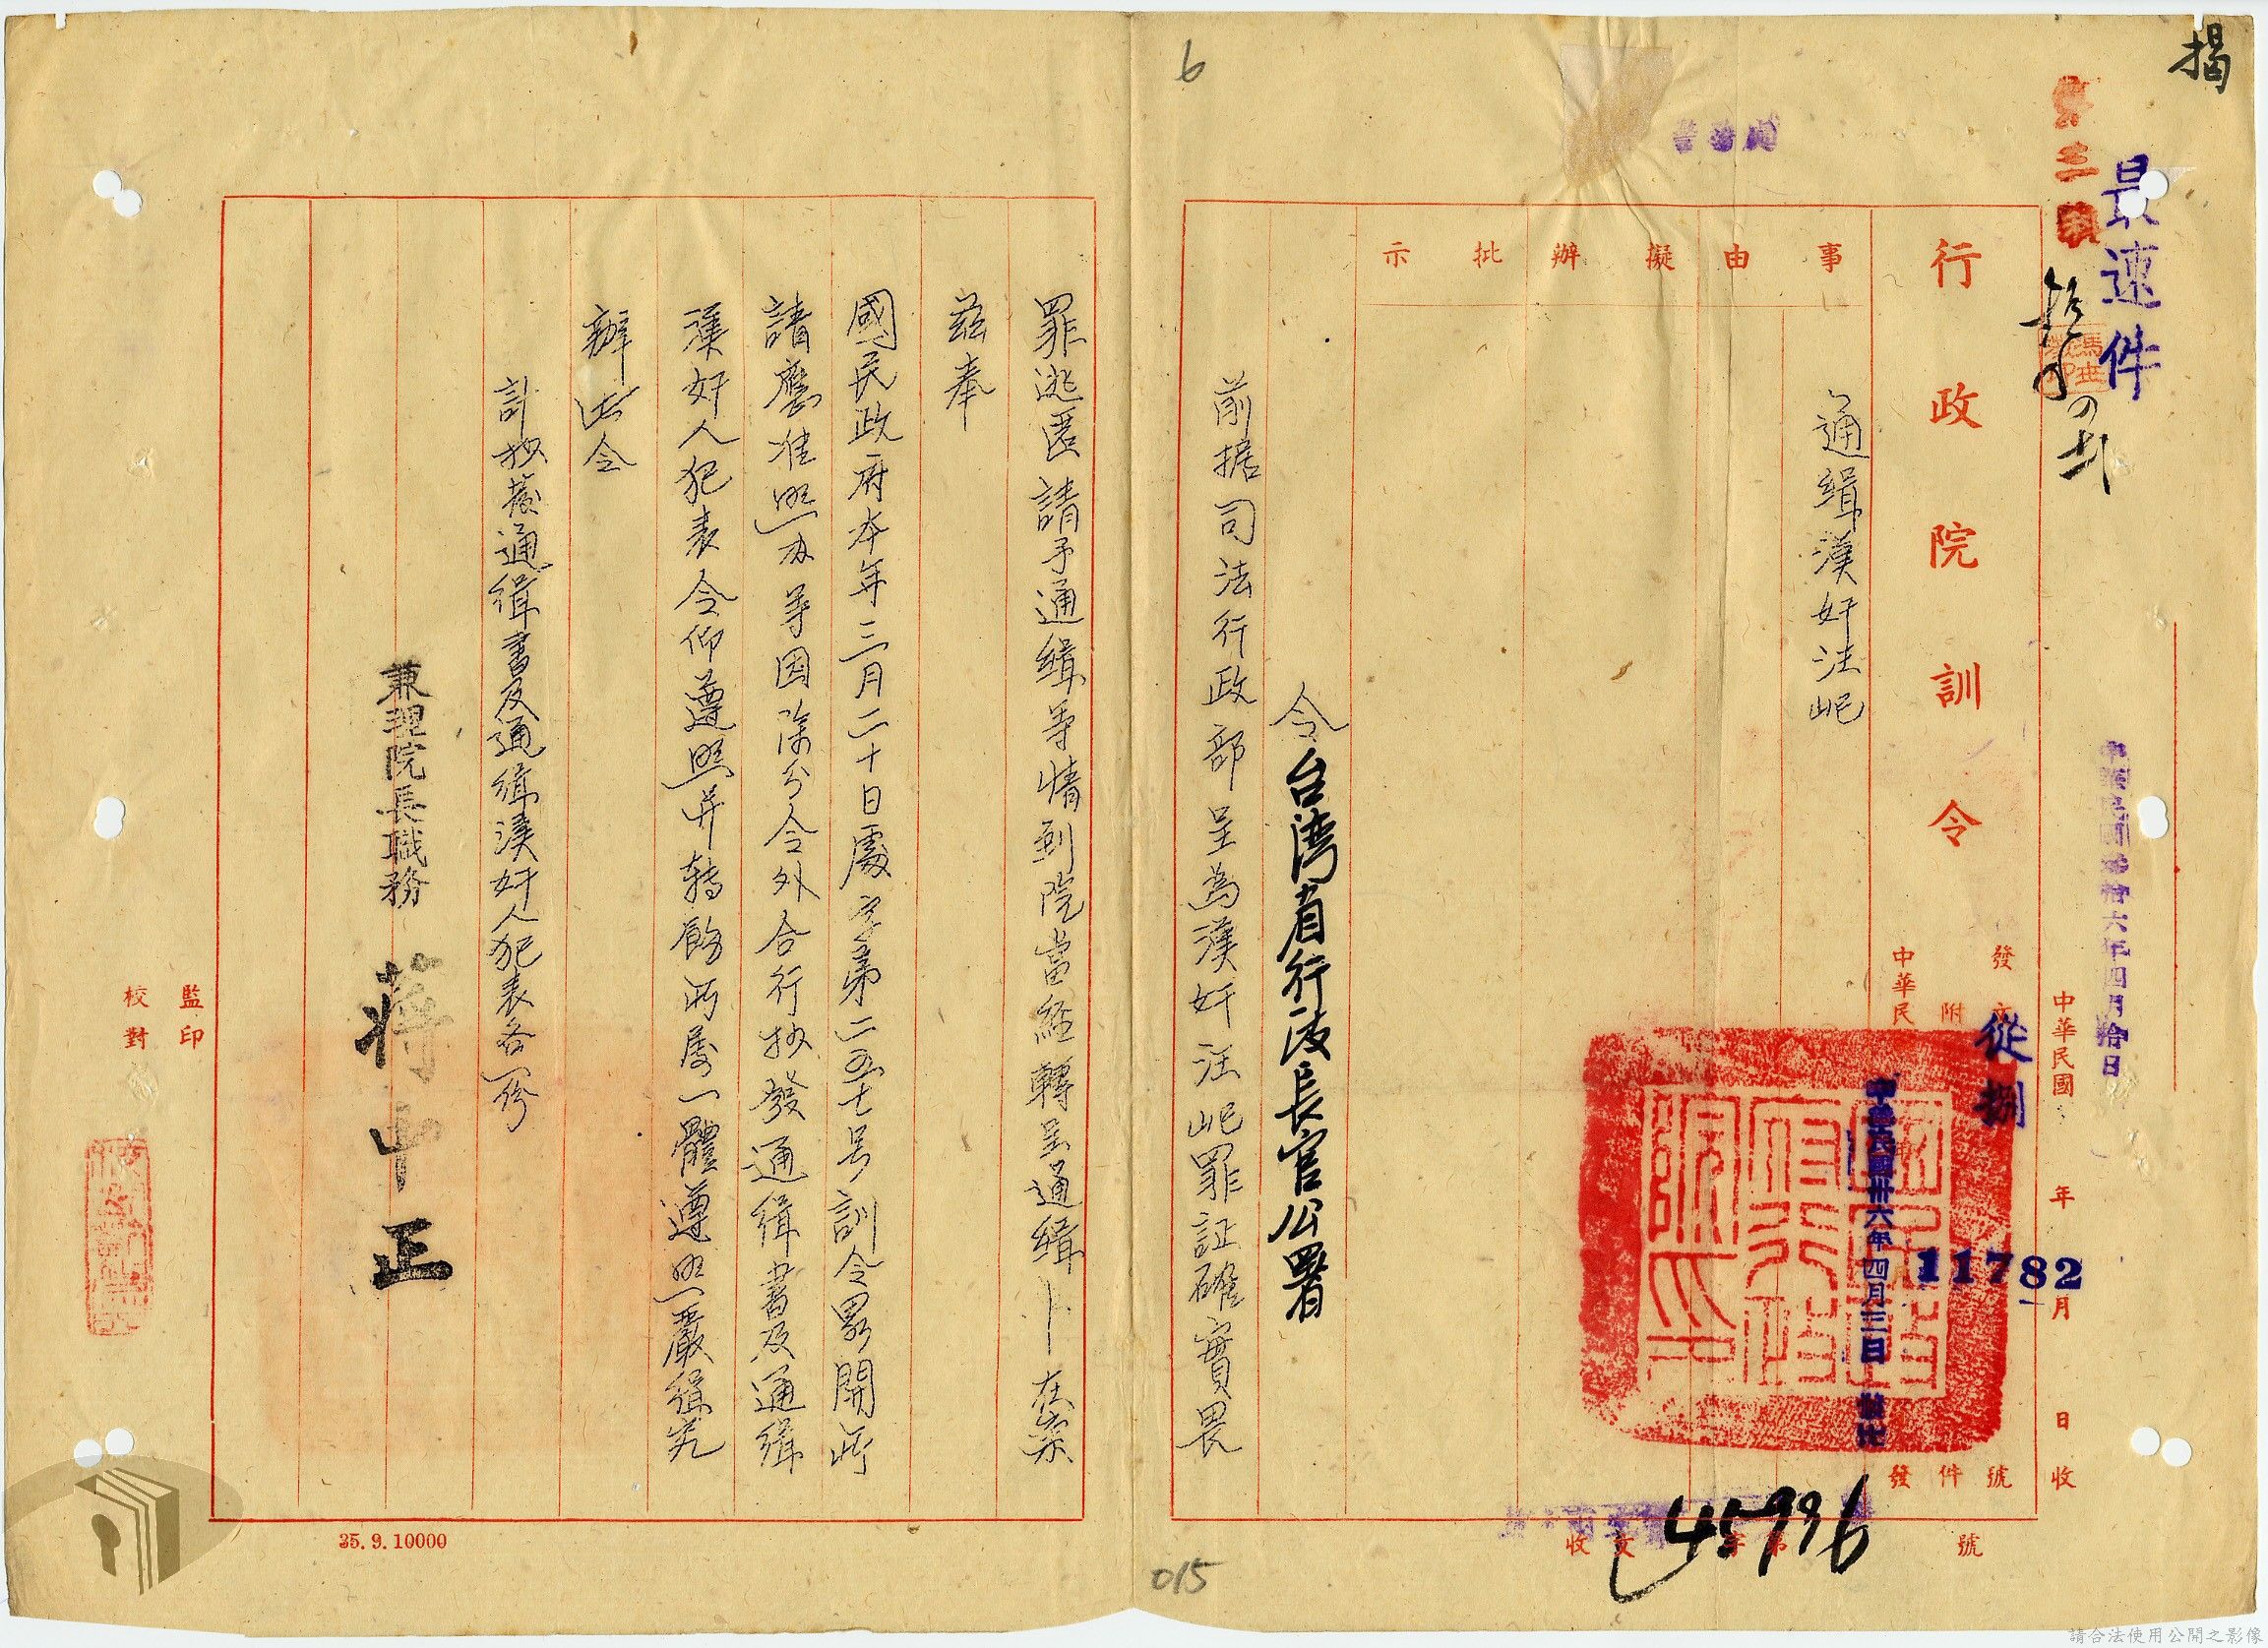 揭
最速件
中華民國叁拾六年四月拾日
中華民國 年 月 日 收
行政院訓令
發文
附
件
號
中華民
發
從捌
11782
中華民國卅六年四月三日
事由
擬辦
批示
通緝漢奸汪屺
令台湾省行政長官公署
前據司法行政部呈為漢奸汪屺罪証確實畏
收文 字第 號
45996
6
015
罪逃匿請予通緝等情到院當經轉呈通緝 在案
茲奉
國民政府本年三月二十日處字第二五七号訓令畧開所
請應准照办等因除分令外合行抄發通緝書及通緝
漢奸人犯表令仰遵照并轉飭所屬一體遵照嚴緝究
辦此令
計抄發通緝書及通緝漢奸人犯表各一份
兼理院長職務 蔣中正
監印
校對
35.9.10000
請合法使用公開之影像